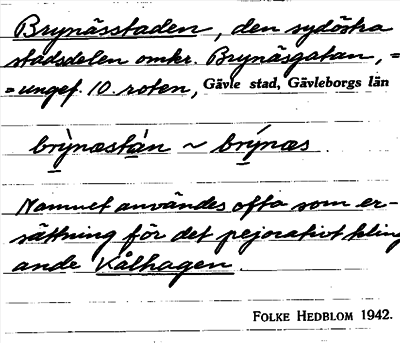 Brynässtaden, den sydöstra
stadsdelen omkr. Brynäsgatan, =
= ungef. 10. roten, Gävle stad, Gävleborgs län
brỳnæstán ~ brýnæs.
Namnet användes ofta som er-
sättning för det pejorativt kling
ande Kålhagen.
FOLKE HEDBLOM 1942.